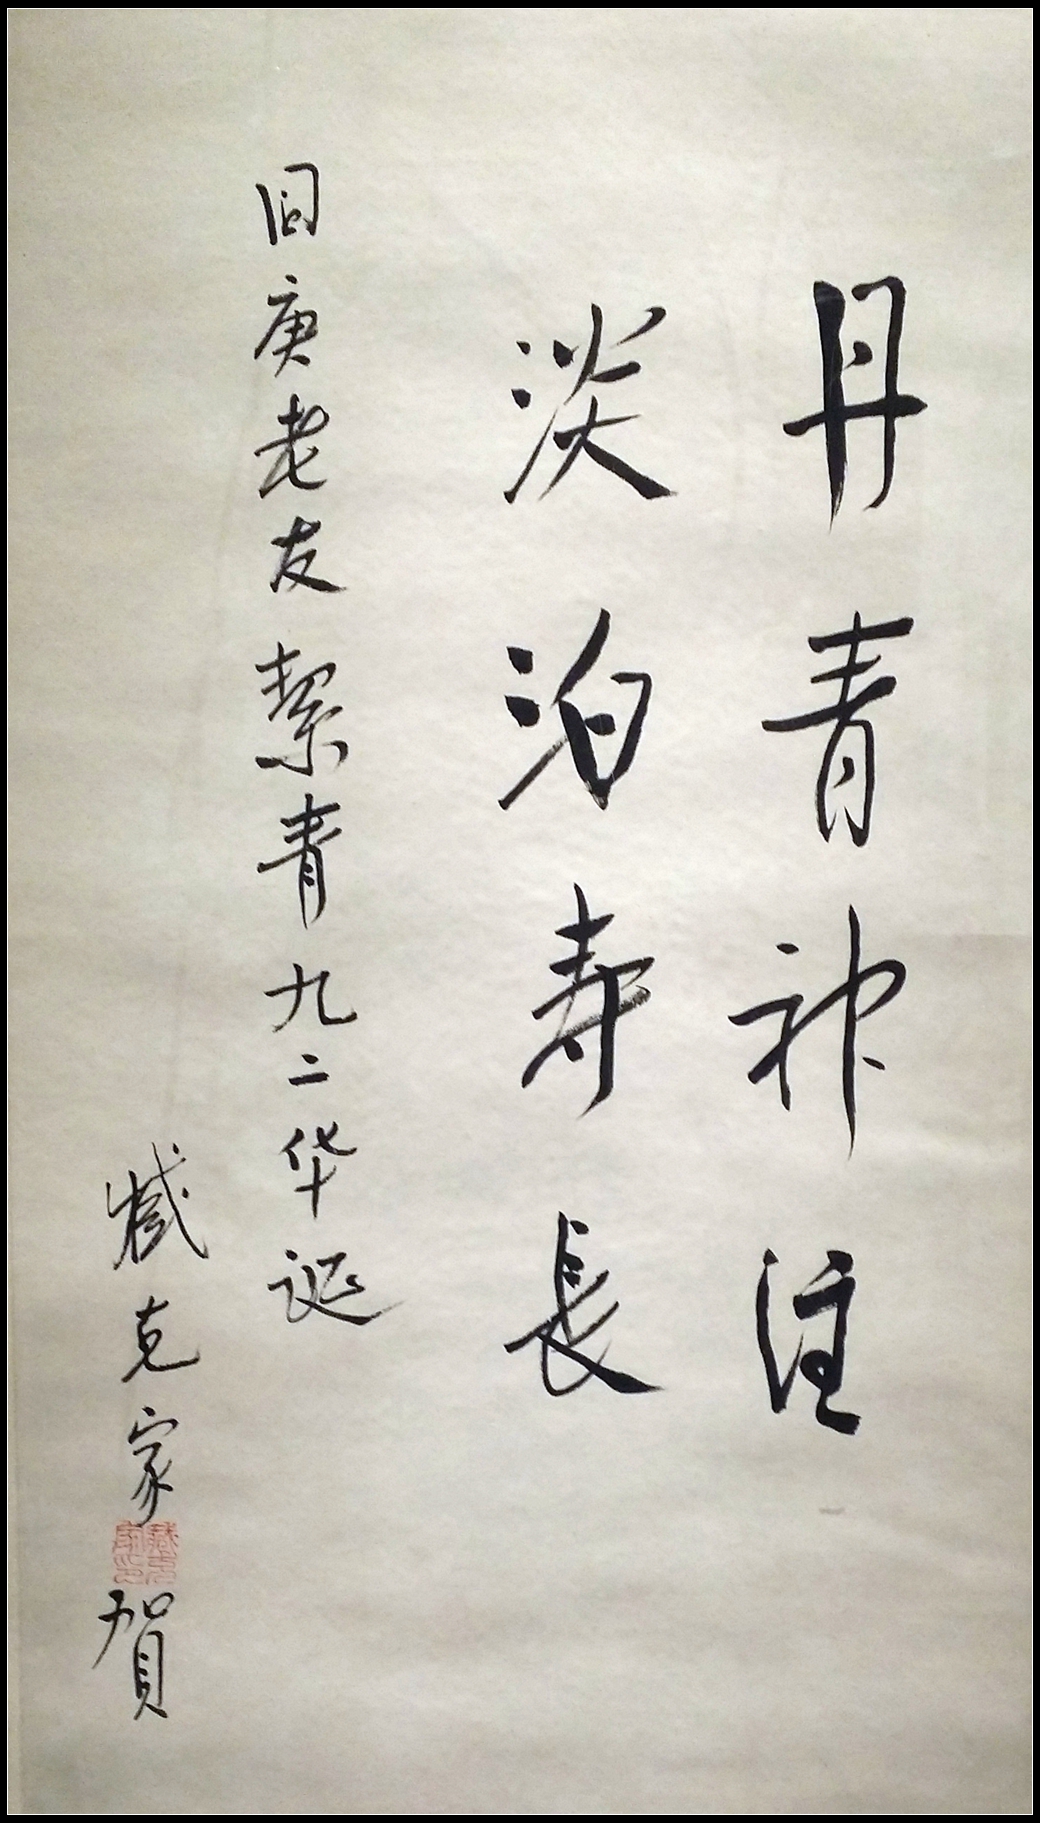 丹青神注
淡泊寿長
同庚老友絜青九二华诞
臧克家賀